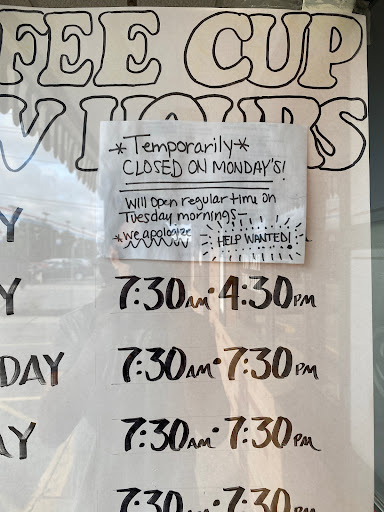 FEE CUP
W HOURS
*Temporarily*
CLOSED ON MONDAY"S!
Will open regular time on
Tuesday mornings—
*we apologize
HELP WANTED!
Y
Y 7:30AM·4:30PM
DAY 7:30AM·7:30PM
AY 7:30AM·7:30PM
7:30AM·7:30PM